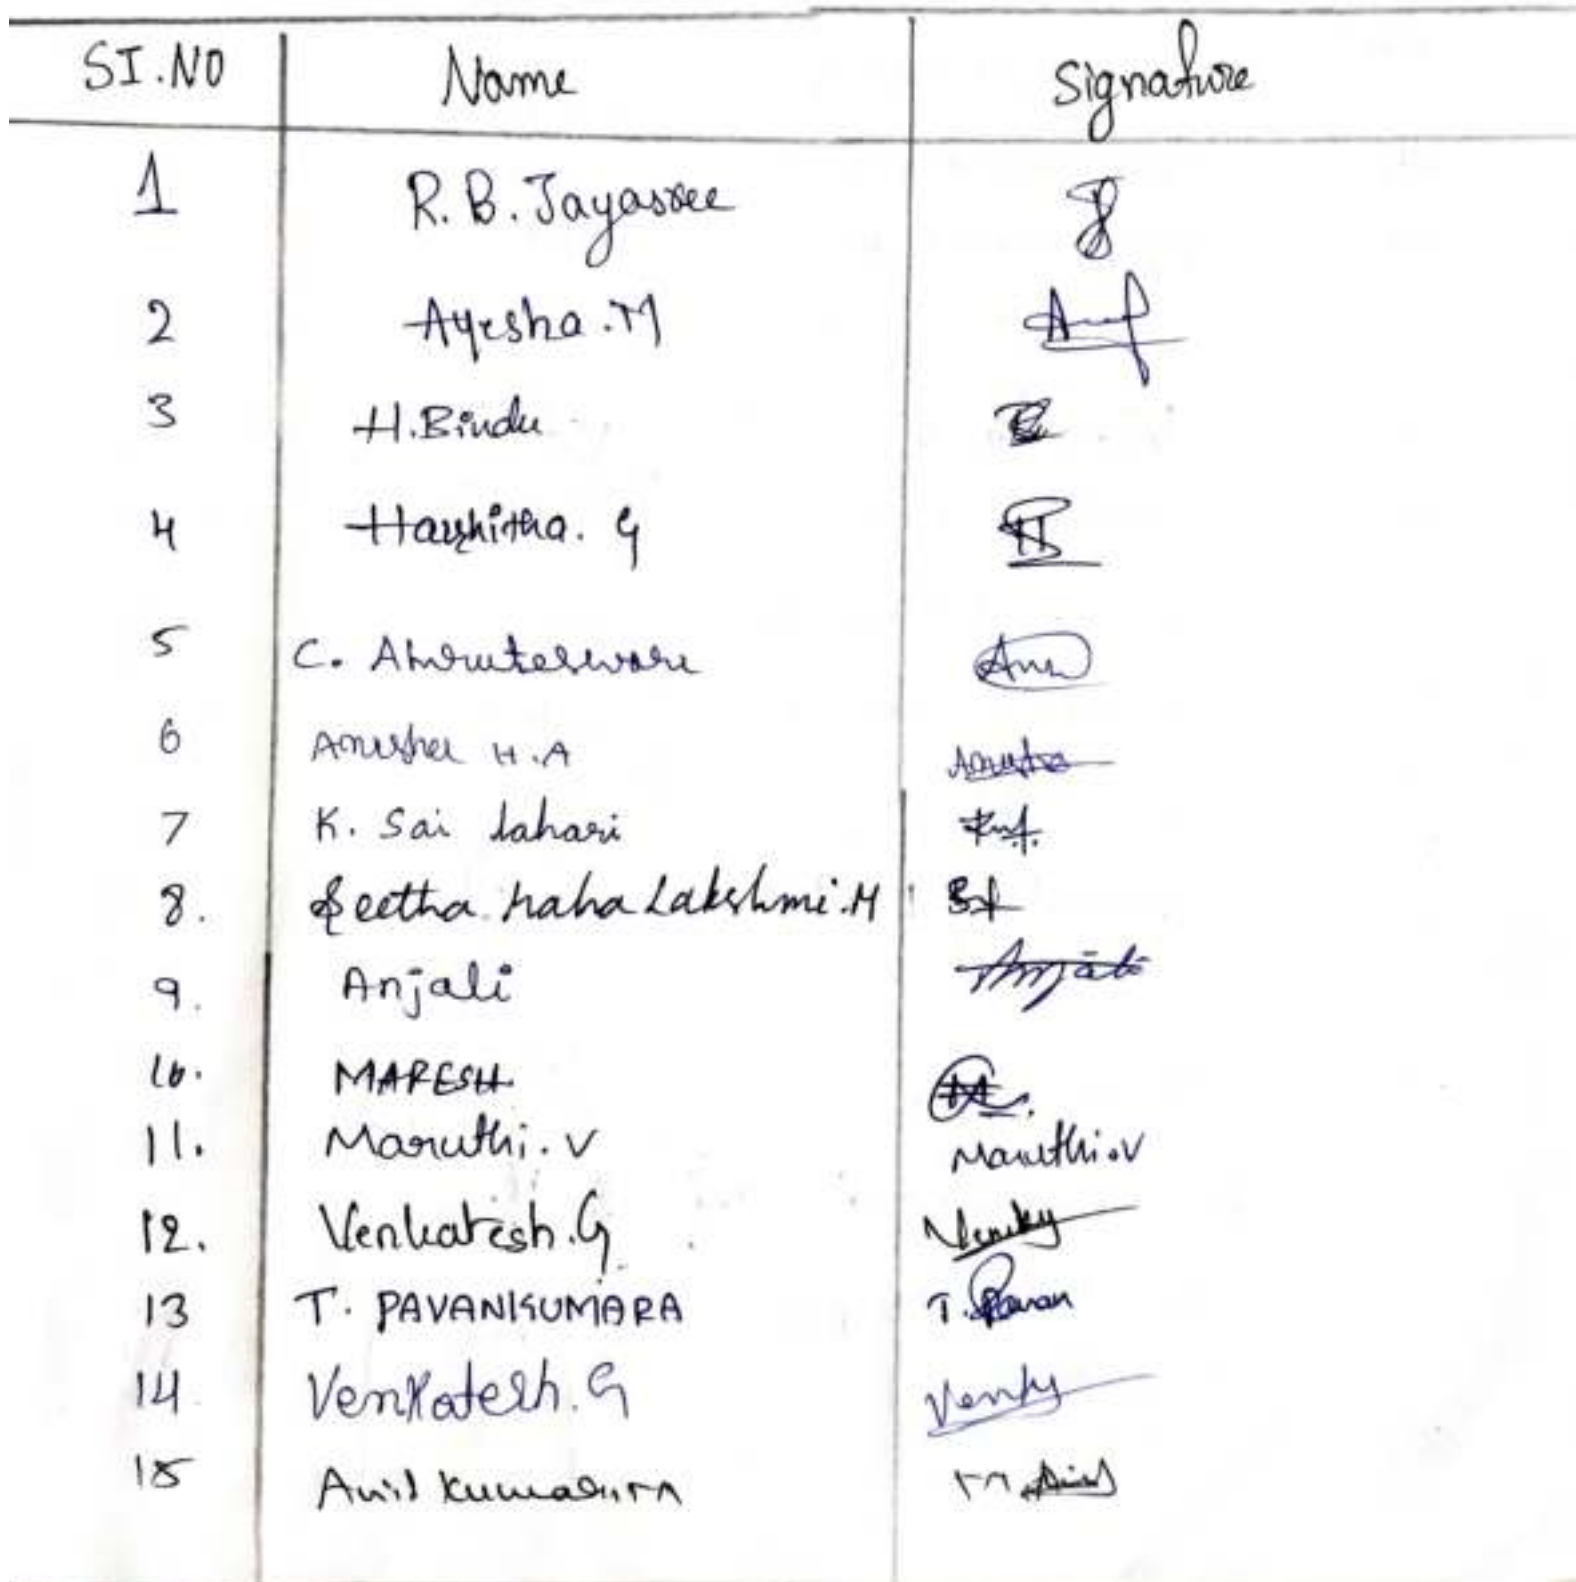 SI.NO Name Signature
1 R.B. Jayasree
2 Ayesha.M
3 H.Bindu
4 Harshitha. G
5 C. Amruteswari
6 Anusha H.A Anusha
7 K. Sai lahari
8. Seetha Maha Lakshmi.M
9. Anjali Anjali
10. MARESH
11. Maruthi.V Maruthi.V
12. Venkatesh.G Venky
13 T. PAVANKUMARA T. Pavan
14. Venkatesh.G Venky
15 Anil Kumar.M M Anil